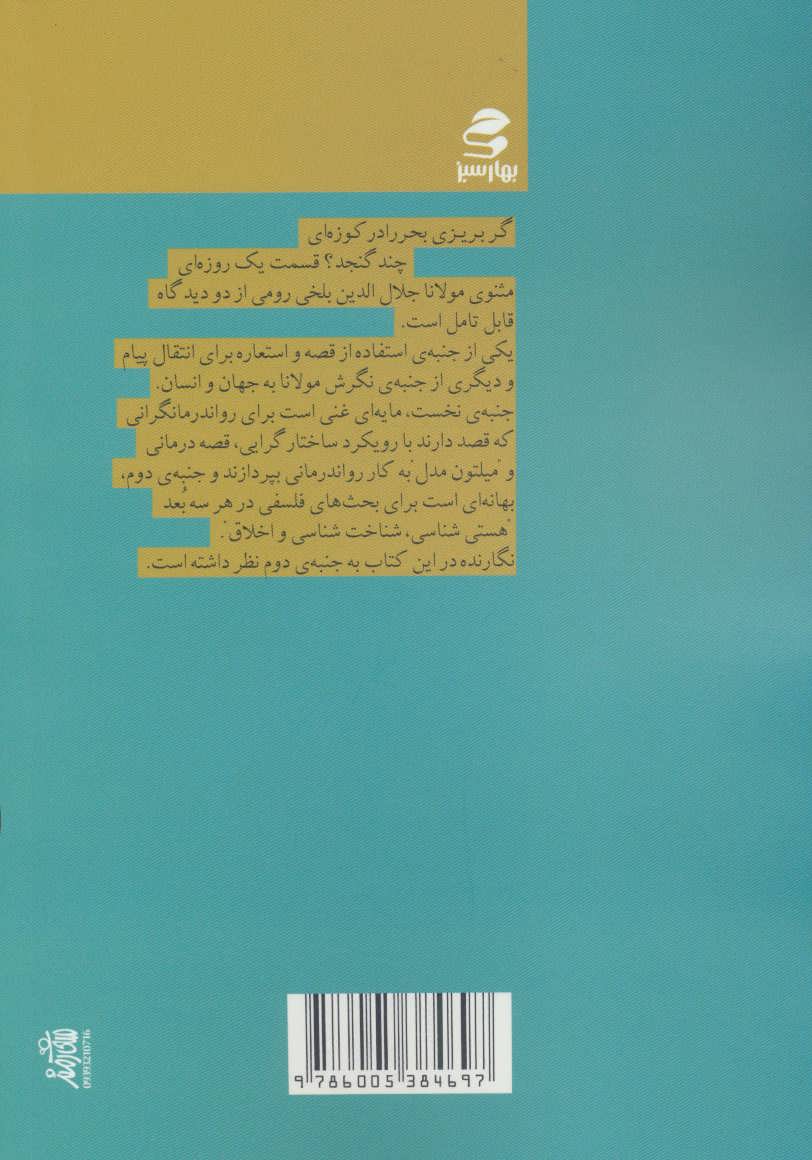 بهار سبز
گر بریزی بحر را در کوزه‌ای
چند گنجد؟ قسمت یک روزه‌ای
مثنوی مولانا جلال الدین بلخی رومی از دو دیدگاه
قابل تامل است.
یکی از جنبه‌ی استفاده از قصه و استعاره برای انتقال پیام
و دیگری از جنبه‌ی نگرش مولانا به جهان و انسان.
جنبه‌ی نخست، مایه‌ای غنی است برای رواندرمانگرانی
که قصد دارند با رویکرد ساختارگرایی، قصه درمانی
و "میلتون مدل" به کار رواندرمانی بپردازند و جنبه‌ی دوم،
بهانه‌ای است برای بحث‌های فلسفی در هر سه بُعد
"هستی شناسی، شناخت شناسی و اخلاق".
نگارنده در این کتاب به جنبه‌ی دوم نظر داشته است.
09393210716
9 786005 384697